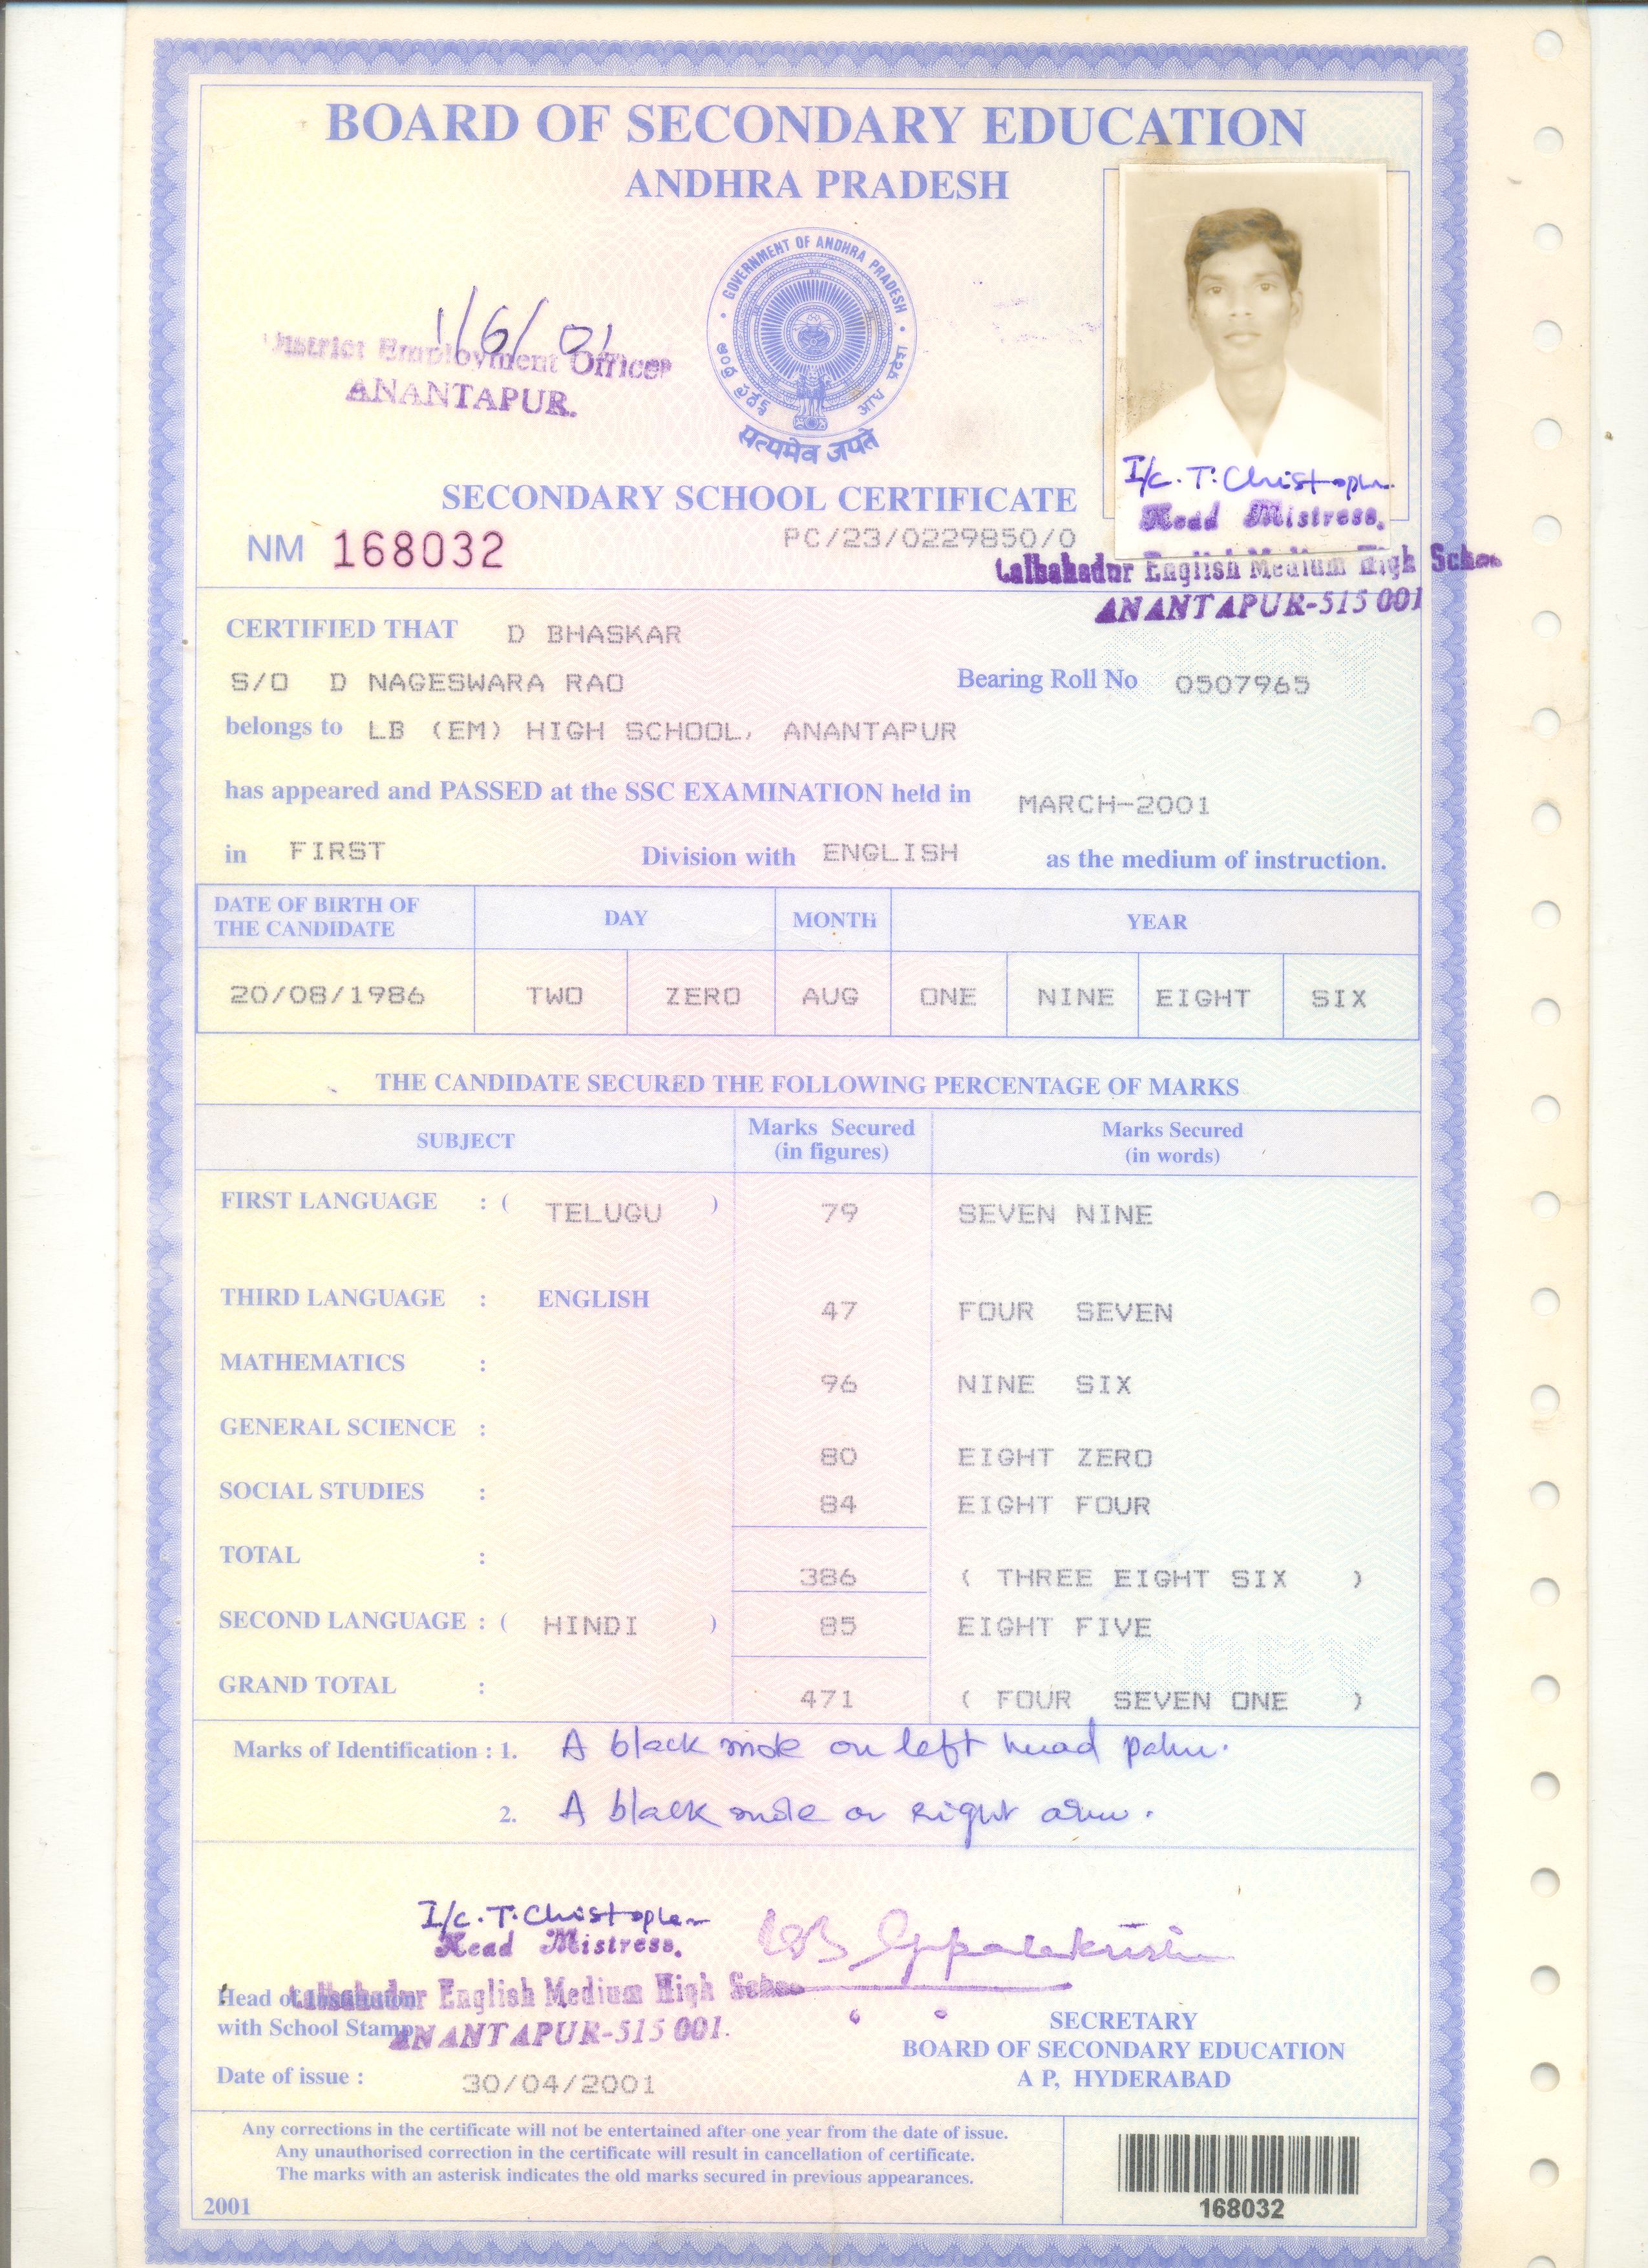 BOARD OF SECONDARY EDUCATION
ANDHRA PRADESH
GOVERNMENT OF ANDHRA PRADESH
सत्यमेव जयते
1/6/01
District Employment Officer
ANANTAPUR.
I/c. T. Christopher
Head Mistress.
Lalbahadur English Medium High School
ANANTAPUR-515 001
SECONDARY SCHOOL CERTIFICATE
NM 168032
PC/23/0229850/0
CERTIFIED THAT D BHASKAR
S/O D NAGESWARA RAO Bearing Roll No 0507965
belongs to LB (EM) HIGH SCHOOL, ANANTAPUR
has appeared and PASSED at the SSC EXAMINATION held in MARCH-2001
in FIRST Division with ENGLISH as the medium of instruction.
DATE OF BIRTH OF THE CANDIDATE DAY MONTH YEAR
20/08/1986 TWO ZERO AUG ONE NINE EIGHT SIX
THE CANDIDATE SECURED THE FOLLOWING PERCENTAGE OF MARKS
SUBJECT Marks Secured (in figures) Marks Secured (in words)
FIRST LANGUAGE : ( TELUGU ) 79 SEVEN NINE
THIRD LANGUAGE : ENGLISH 47 FOUR SEVEN
MATHEMATICS : 96 NINE SIX
GENERAL SCIENCE : 80 EIGHT ZERO
SOCIAL STUDIES : 84 EIGHT FOUR
TOTAL : 386 ( THREE EIGHT SIX )
SECOND LANGUAGE : ( HINDI ) 85 EIGHT FIVE
GRAND TOTAL : 471 ( FOUR SEVEN ONE )
Marks of Identification : 1. A black mole on left hand palm.
2. A black mole on right arm.
I/c. T. Christopher
Head Mistress.
Lalbahadur English Medium High School
ANANTAPUR-515 001.
Head of Institution
with School Stamp
SECRETARY
BOARD OF SECONDARY EDUCATION
A P, HYDERABAD
Date of issue : 30/04/2001
Any corrections in the certificate will not be entertained after one year from the date of issue.
Any unauthorised correction in the certificate will result in cancellation of certificate.
The marks with an asterisk indicates the old marks secured in previous appearances.
2001
168032